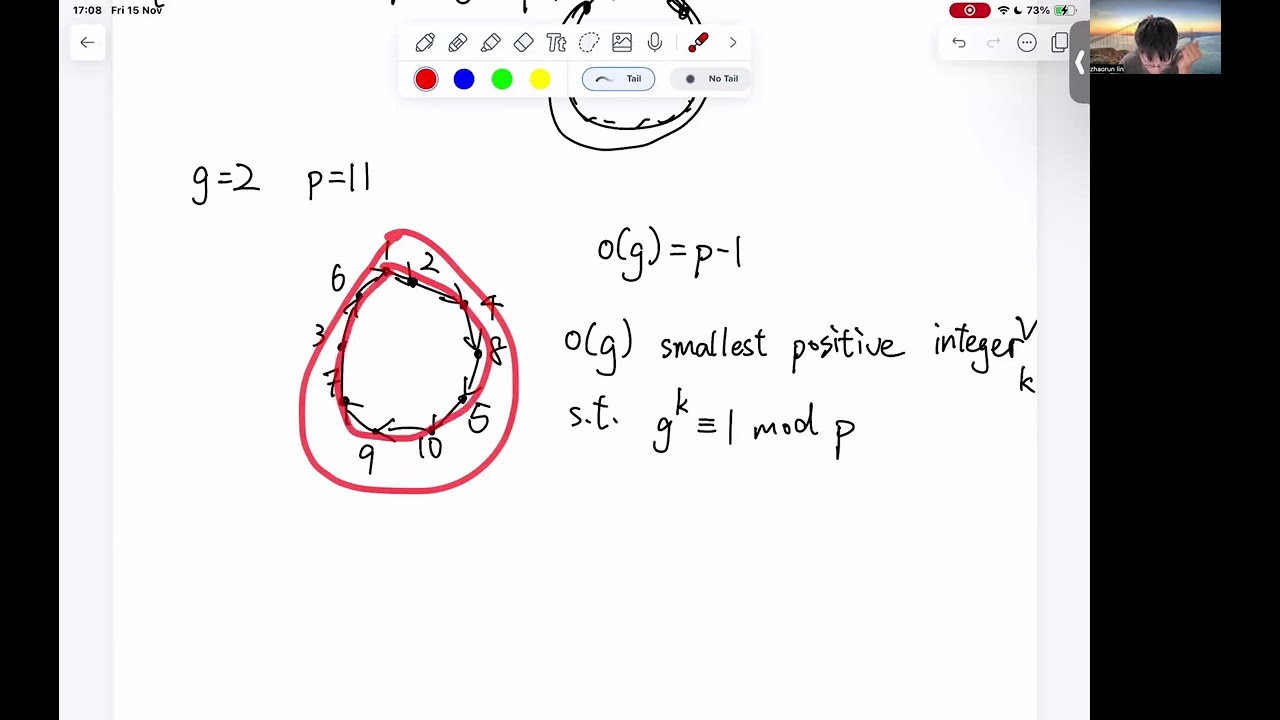 17:08 Fri 15 Nov
73%
Tt
Tail
No Tail
zhaorun lin
g=2 p=11
o(g) = p-1
1
2
6
4
3
8
7
5
9
10
o(g) smallest positive integer
k
s.t. g^k ≡ 1 mod p